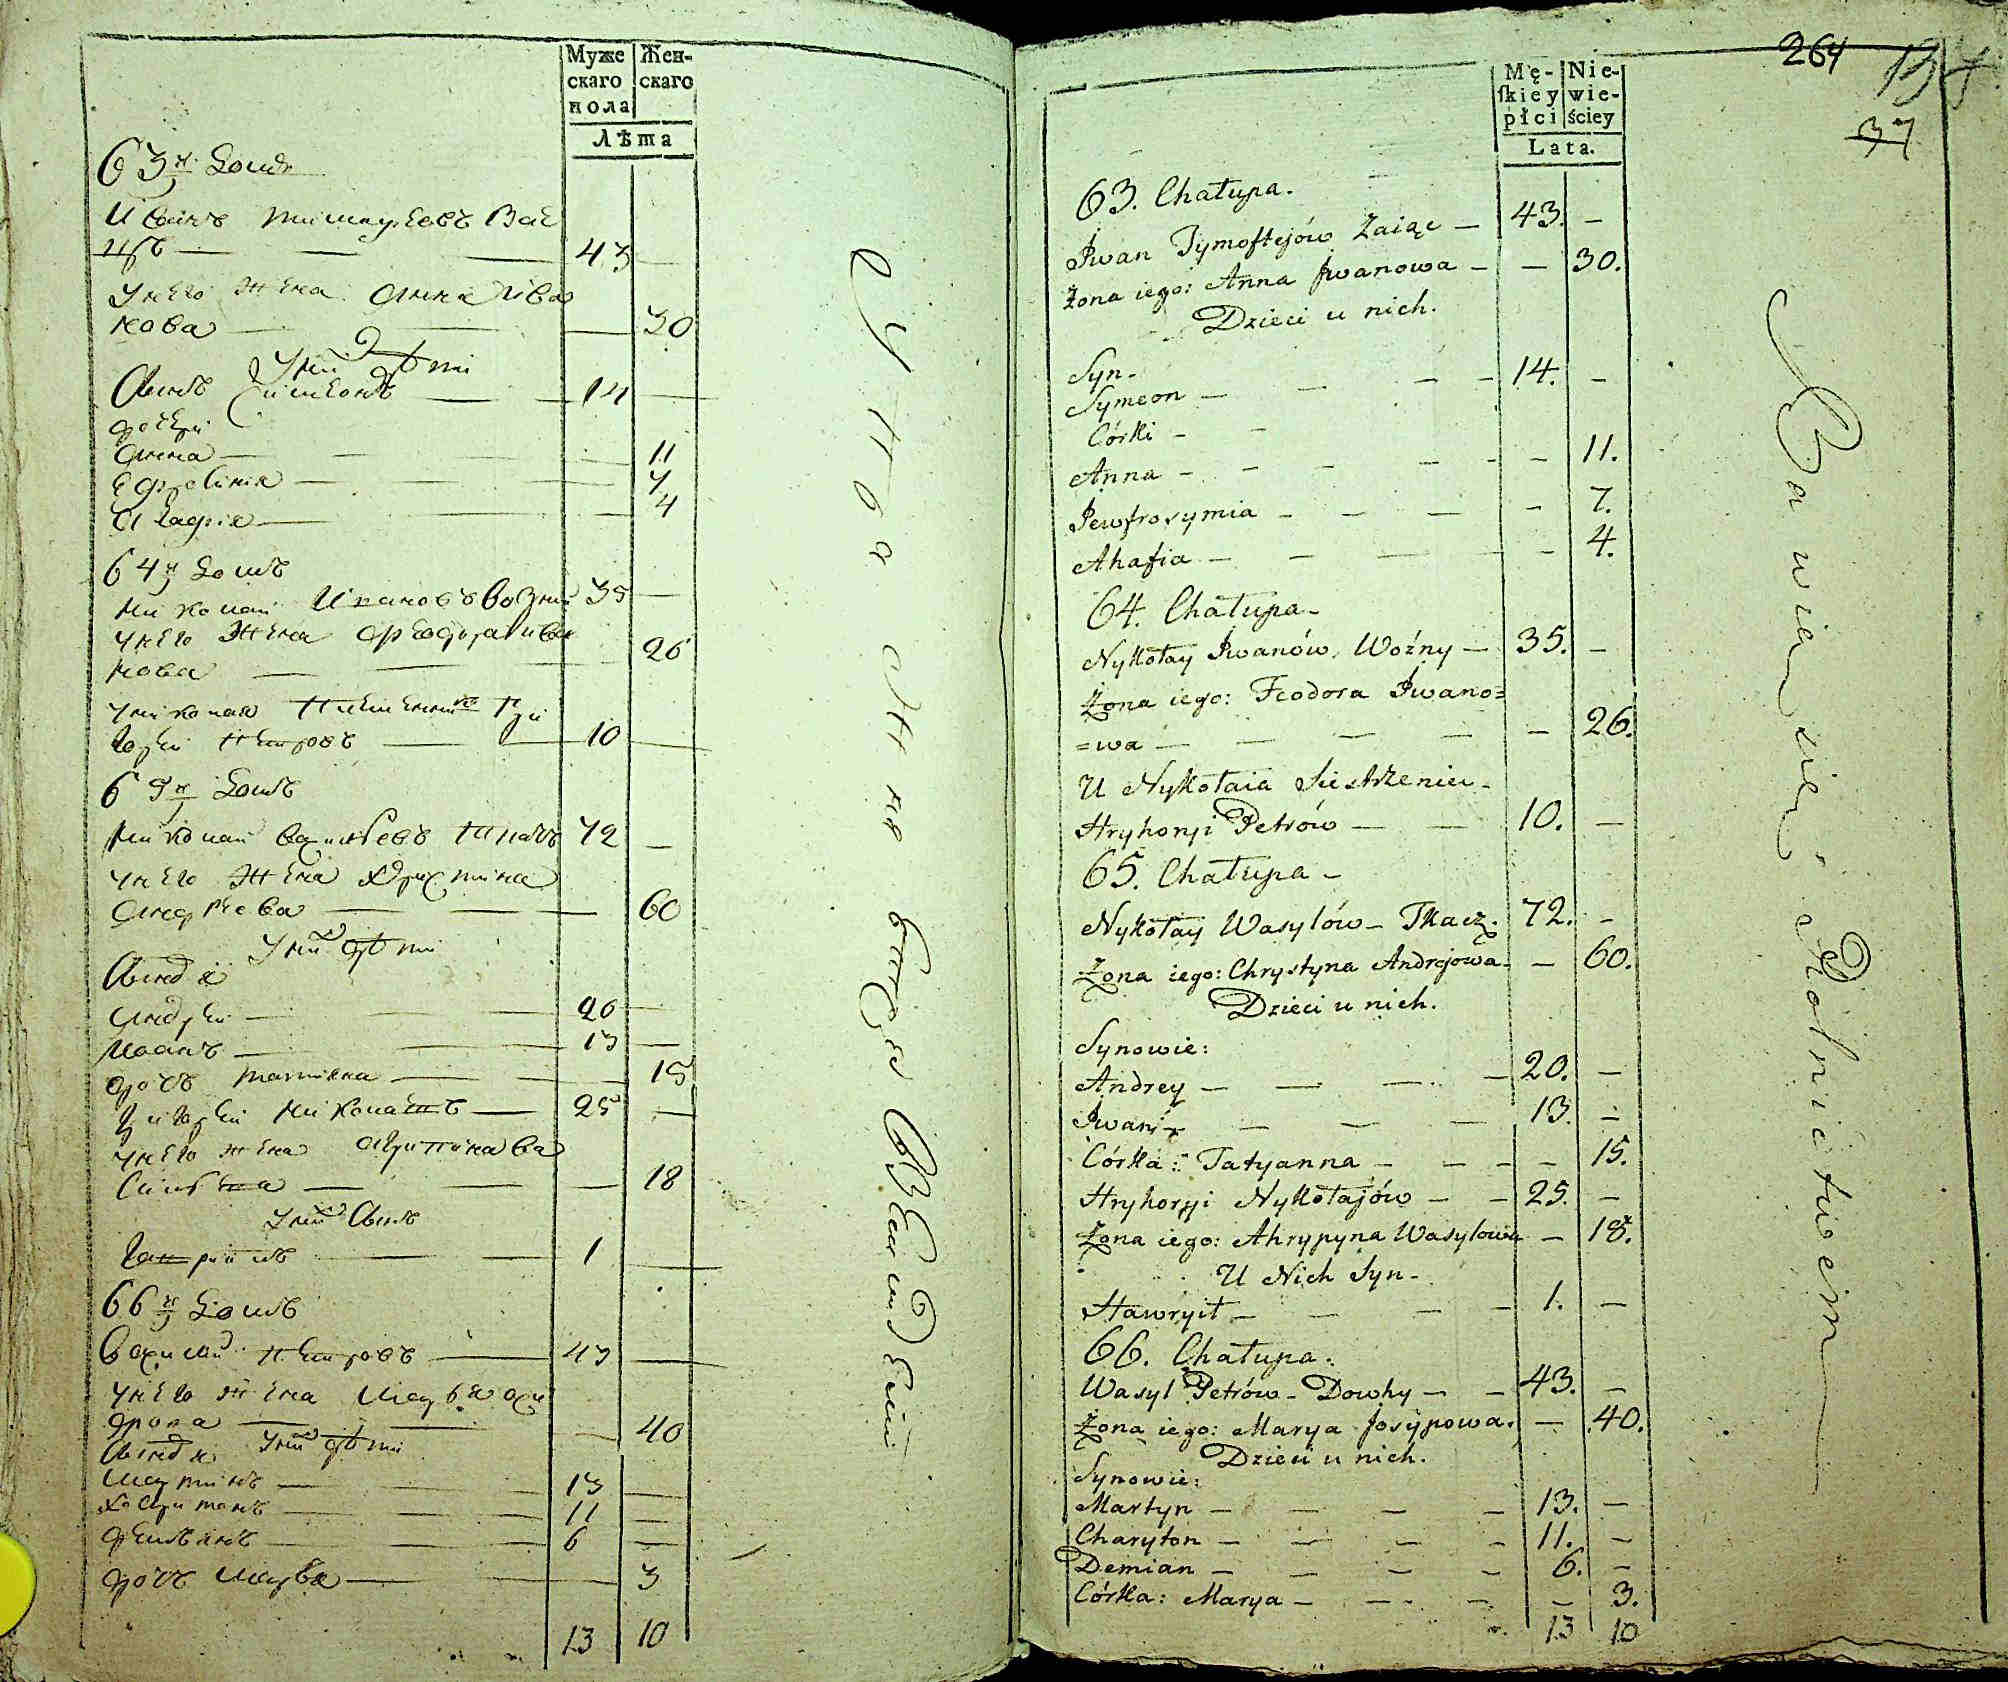 Муже
скаго
пола
Жен-
скаго
Лѣта
63й Домъ
Иванъ Тимоѳеевъ Заѣ
цъ 43
у него жена Анна Ива
нова 30
у них дѣти
Сынъ Симеонъ 14
дочери
Анна 11
Ефросиния 7
Агафия 4
64й Домъ
Николай Ивановъ Возний 35
у него жена Феодора Ива
нова 26
у Николая Племенникъ Гри
горей Петровъ 10
65й Домъ
Николай Васильевъ Ткачъ 72
у него жена Христина
Андреева 60
у них дѣти
Сыновя
Андрей 20
Иванъ 13
дочь Татияна 15
Григорей Николаевъ 25
у него жена Агрипина Ва
силева 18
у них Сынъ
Гавриилъ 1
66й Домъ
Василий Петровъ 43
у него жена Маря
40
Сыновя у них дѣти
Мартинъ 13
Харитонъ 11
Демянъ 6
дочь Маря 3
13 10
264
37
Mę-
ſkiey
płci
Nie-
wie-
ściey
Lata.
63. Chałupa.
Iwan Tymoftejów Zaiąc 43. -
Żona iego: Anna Iwanowa - 30.
Dzieci u nich.
Syn.
Symeon 14. -
Córki
Anna - 11.
Jewfrosymia - 7.
Ahafia - 4.
64. Chałupa
Nykołay Iwanów Woźny 35. -
Żona iego: Feodora Iwano=
=wa - 26.
U Nykołaia Siestrzeniec
Hryhoryi Petrów 10. -
65. Chałupa
Nykołay Wasylów - Tkacz. 72. -
Żona iego: Chrystyna Andrejowa - 60.
Dzieci u nich.
Synowie:
Andrey 20. -
Iwan 13. -
Córka: Tatyanna - 15.
Hryhoryi Nykołajów 25. -
Żona iego: Ahrypyna Wasylowa - 18.
U Nich Syn
Hawryił 1. -
66. Chałupa.
Wasyl Petrów - Dowhy 43. -
Żona iego: Marya Josypowa. - 40.
Dzieci u nich.
Synowie:
Martyn 13. -
Charyton 11. -
Demian 6. -
Córka: Marya - 3.
13 10
Bawiąci się Rolnictwem